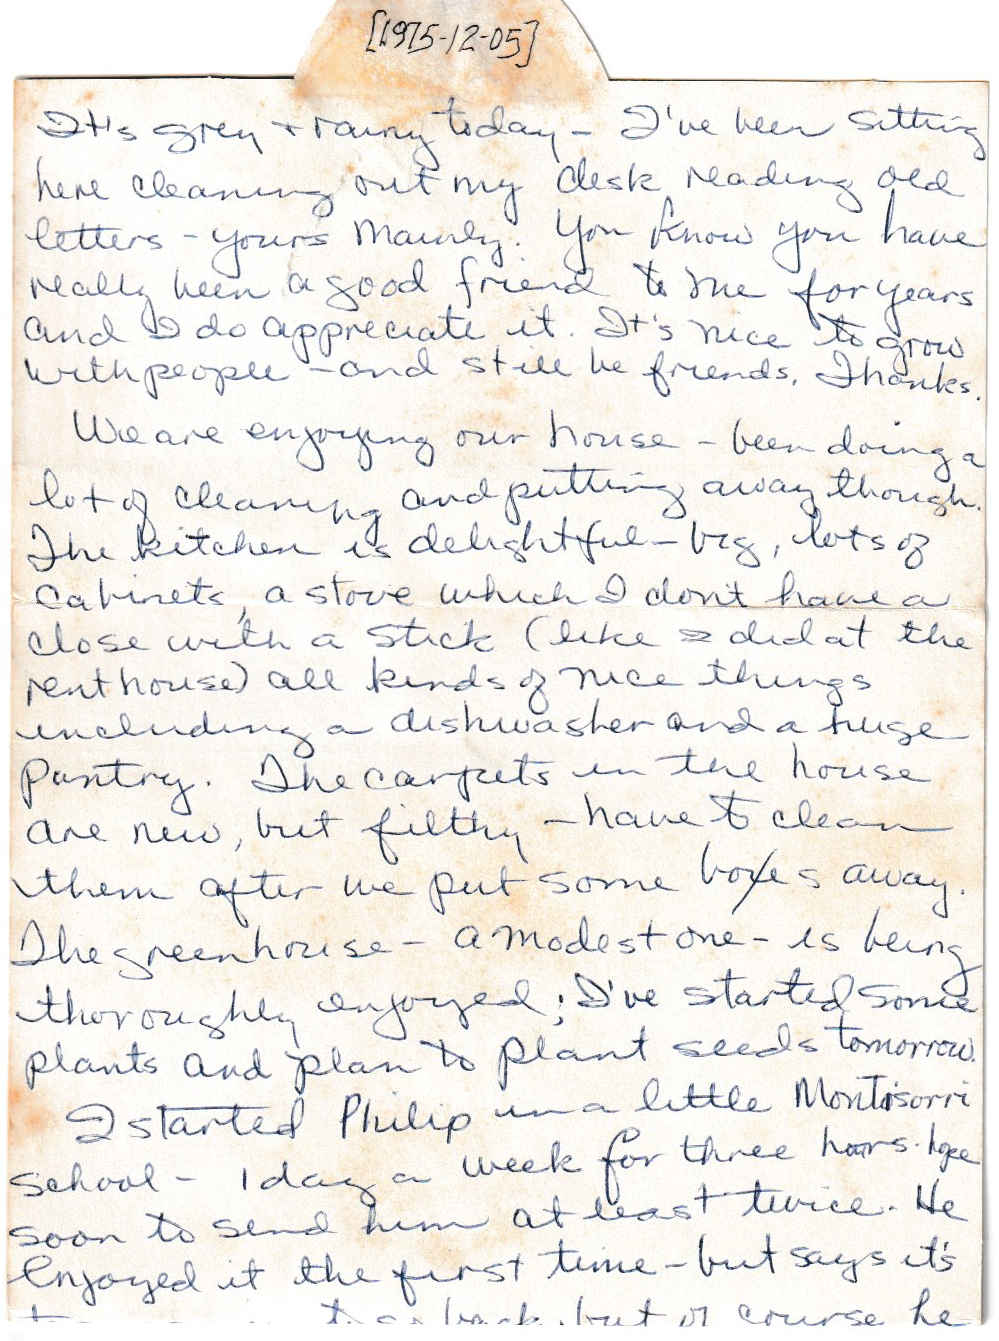 [1975-12-05]
It's grey + rainy today - I've been sitting
here cleaning out my desk reading old
letters - yours mainly. You know you have
really been a good friend to me for years
and I do appreciate it. It's nice to grow
with people - and still be friends. Thanks.
We are enjoying our house - been doing a
lot of cleaning and putting away though.
The kitchen is delightful - big, lots of
cabinets, a stove which I don't have a
close with a stick (like I did at the
rent house) all kinds of nice things
including a dishwasher and a huge
pantry. The carpets in the house
are new, but filthy - have to clean
them after we put some boxes away.
The greenhouse - a modest one - is being
thoroughly enjoyed; I've started some
plants and plan to plant seeds tomorrow.
I started Philip in a little Montisorri
school - 1 day a week for three hours. hope
soon to send him at least twice. He
enjoyed it the first time - but says it's
to go back, but of course he